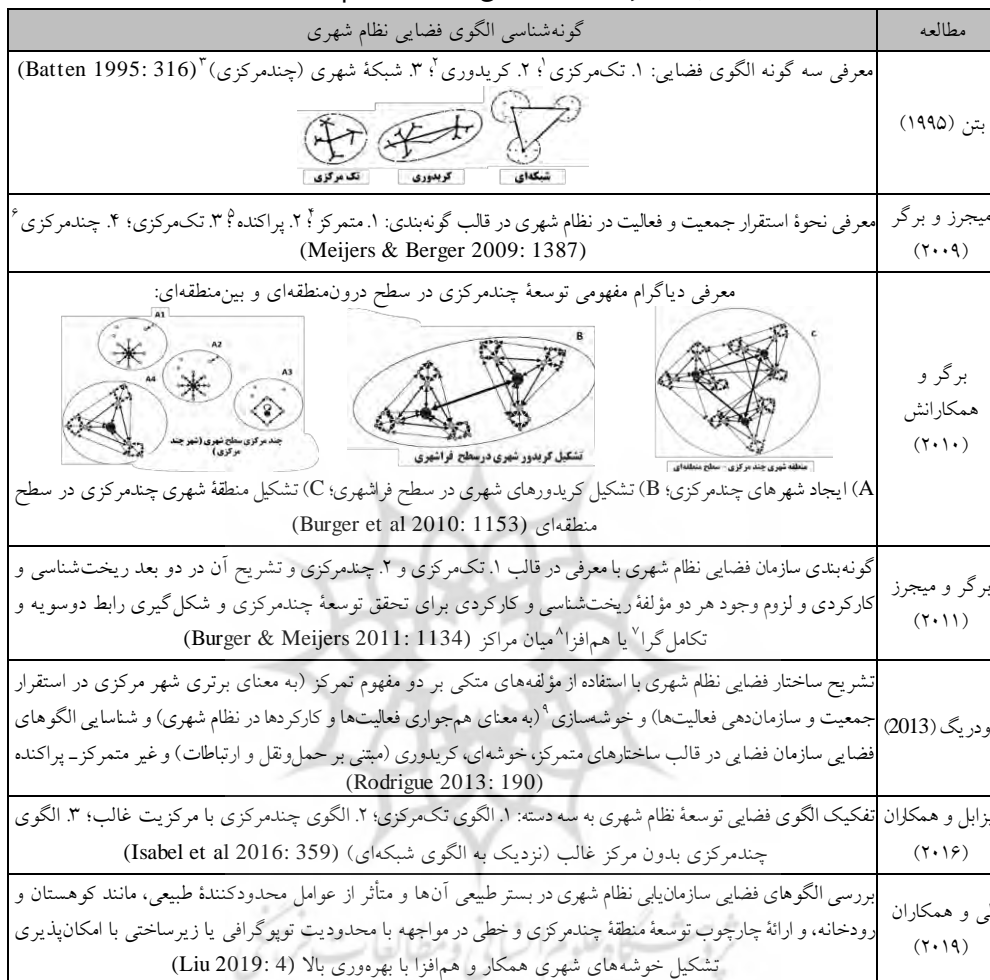 مطالعه
گونه‌شناسی الگوی فضایی نظام شهری
بتن (۱۹۹۵)
معرفی سه گونه الگوی فضایی: ۱. تک‌مرکزی۱؛ ۲. کریدوری۲؛ ۳. شبکهٔ شهری (چندمرکزی)۳ (Batten 1995: 316)
تک مرکزی
کریدوری
شبکه‌ای
میجرز و برگر
(۲۰۰۹)
معرفی نحوهٔ استقرار جمعیت و فعالیت در نظام شهری در قالب گونه‌بندی: ۱. متمرکز۴؛ ۲. پراکنده۵؛ ۳. تک‌مرکزی؛ ۴. چندمرکزی۶
(Meijers & Berger 2009: 1387)
برگر و
همکارانش
(۲۰۱۰)
معرفی دیاگرام مفهومی توسعهٔ چندمرکزی در سطح درون‌منطقه‌ای و بین‌منطقه‌ای:
A1
A2
A3
A4
چند مرکزی سطح شهری (شهر چند
مرکزی)
B
تشکیل کریدور شهری در سطح فراشهری
C
منطقه شهری چند مرکزی - سطح منطقه‌ای
A) ایجاد شهرهای چندمرکزی؛ B) تشکیل کریدورهای شهری در سطح فراشهری؛ C) تشکیل منطقهٔ شهری چندمرکزی در سطح
منطقه‌ای (Burger et al 2010: 1153)
برگر و میجرز
(۲۰۱۱)
گونه‌بندی سازمان فضایی نظام شهری با معرفی در قالب ۱. تک‌مرکزی و ۲. چندمرکزی و تشریح آن در دو بعد ریخت‌شناسی و
کارکردی و لزوم وجود هر دو مؤلفهٔ ریخت‌شناسی و کارکردی برای تحقق توسعهٔ چندمرکزی و شکل‌گیری رابط دوسویه و
تکامل‌گرا۷ یا هم‌افزا۸ میان مراکز (Burger & Meijers 2011: 1134)
ودریگ (2013)
تشریح ساختار فضایی نظام شهری با استفاده از مؤلفه‌های متکی بر دو مفهوم تمرکز (به معنای برتری شهر مرکزی در استقرار
جمعیت و سازمان‌دهی فعالیت‌ها) و خوشه‌سازی۹ (به معنای هم‌جواری فعالیت‌ها و کارکردها در نظام شهری) و شناسایی الگوهای
فضایی سازمان فضایی در قالب ساختارهای متمرکز، خوشه‌ای، کریدوری (مبتنی بر حمل‌ونقل و ارتباطات) و غیر متمرکز ـ پراکنده
(Rodrigue 2013: 190)
یزابل و همکاران
(۲۰۱۶)
تفکیک الگوی فضایی توسعهٔ نظام شهری به سه دسته: ۱. الگوی تک‌مرکزی؛ ۲. الگوی چندمرکزی با مرکزیت غالب؛ ۳. الگوی
چندمرکزی بدون مرکز غالب (نزدیک به الگوی شبکه‌ای) (Isabel et al 2016: 359)
ئی و همکاران
(۲۰۱۹)
بررسی الگوهای فضایی سازمان‌یابی نظام شهری در بستر طبیعی آن‌ها و متأثر از عوامل محدودکنندهٔ طبیعی، مانند کوهستان و
رودخانه، و ارائهٔ چارچوب توسعهٔ منطقهٔ چندمرکزی و خطی در مواجهه با محدودیت توپوگرافی یا زیرساختی با امکان‌پذیری
تشکیل خوشه‌های شهری همکار و هم‌افزا با بهره‌وری بالا (Liu 2019: 4)